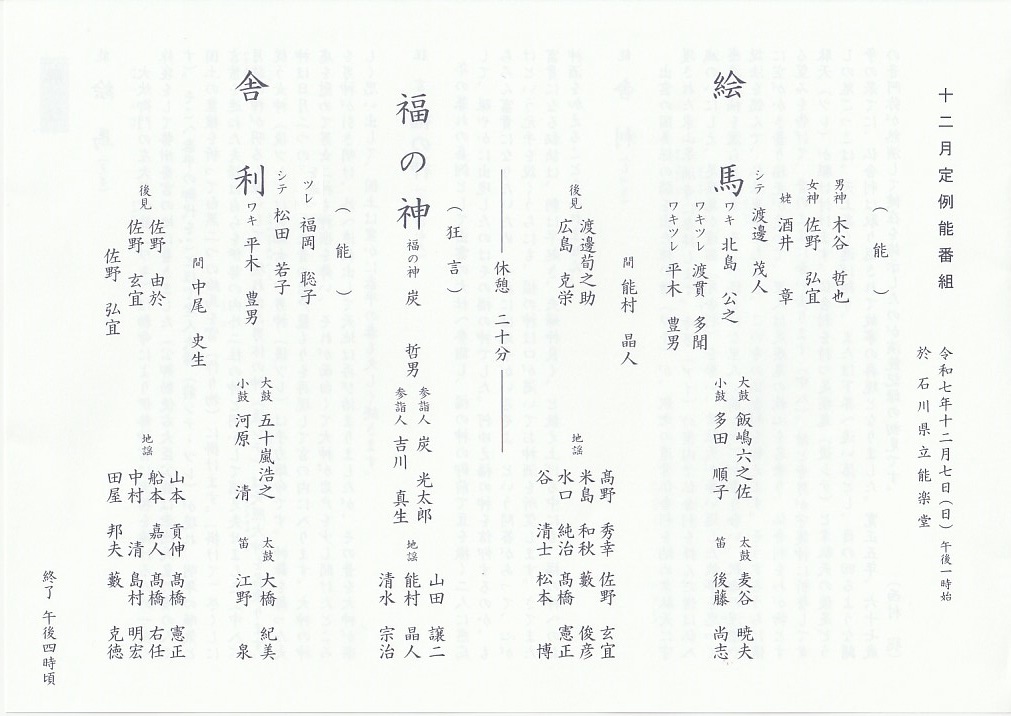 十二月定例能番組
令和七年十二月七日（日）　午後一時始
於　石川県立能楽堂
（能）
絵馬
男神　木谷　哲也
女神　佐野　弘宜
姥　酒井　章
シテ　渡邊　茂人
ワキ　北島　公之
ワキツレ　渡貫　多聞
ワキツレ　平木　豊男
大鼓　飯嶋六之佐
小鼓　多田　順子
太鼓　麦谷　暁夫
笛　後藤　尚志
間　能村　晶人
後見　渡邊荀之助
広島　克栄
地謡
髙野　秀幸　佐野　玄宜
米島　和秋　藪　俊彦
水口　純治　髙橋　憲正
谷　清士　松本　博
休憩　二十分
（狂言）
福の神
福の神　炭　哲男
参詣人　炭　光太郎
参詣人　吉川　真生
地謡
山田　譲二
能村　晶人
清水　宗治
（能）
舎利
ツレ　福岡　聡子
シテ　松田　若子
ワキ　平木　豊男
大鼓　五十嵐浩之
小鼓　河原　清
太鼓　大橋　紀美
笛　江野　泉
間　中尾　史生
後見　佐野　由於
佐野　玄宜
佐野　弘宜
地謡
山本　貢伸　髙橋　憲正
船本　嘉人　髙橋　右任
中村　清　島村　明宏
田屋　邦夫　藪　克徳
終了　午後四時頃